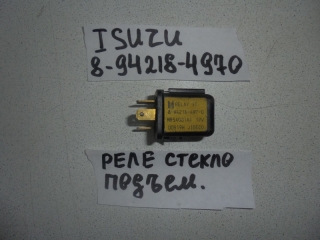 ISUZU
8-94218-4970
РЕЛЕ СТЕКЛО
ПОДЪЕМ.